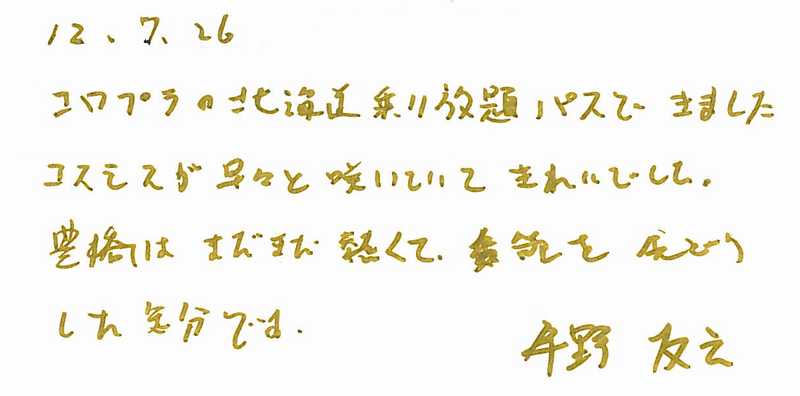 12、7、26
コロプラの北海道乗り放題パスで きました
コスモスが早々と咲いていて きれいでした。
豊橋は まだまだ 熱くて、を
した気分です。
平野 友